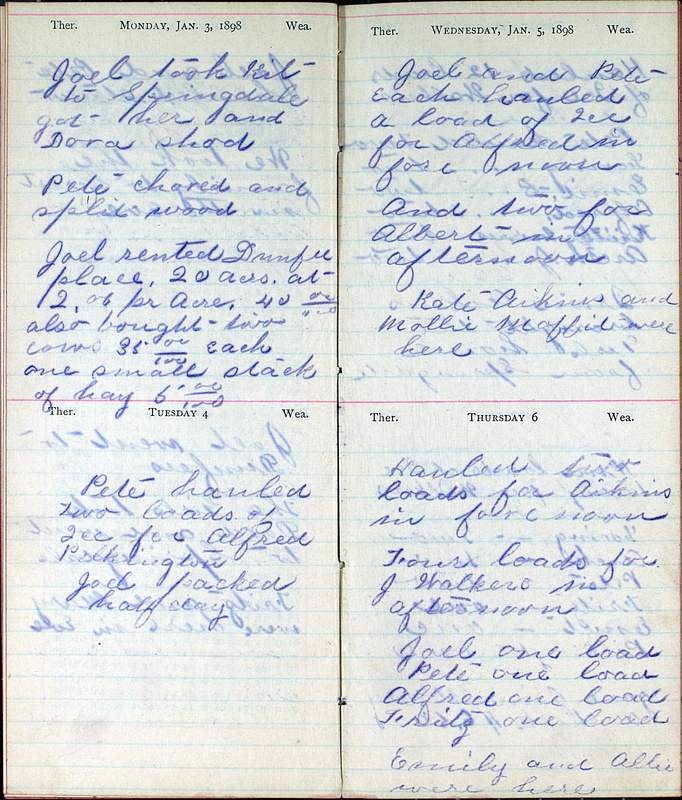 Ther. MONDAY, JAN. 3, 1898 Wea.
Joel took Kit
to Springdale
got her and
Dora shod
Pete chored and
split wood
Joel rented Dunfee
place. 20 acrs. at
12.06 pr Acre. 40 00/100
also bought two
cows 35 00/100 each
one small stack
of hay 5 00/100
Ther. TUESDAY 4 Wea.
Pete hauled
two loads of
Ice for Alfred
Pilkington
Joel packed
half day
Ther. WEDNESDAY, JAN. 5, 1898 Wea.
Joel and Pete
each hauled
a load of Ice
for Alfred in
fore noon
And two for
Albert in
afternoon
Kate Aikins and
Mollie Maffit were
here
Ther. THURSDAY 6 Wea.
Hauled two
loads for Aikins
in fore noon
Four loads for
J Walkers in
afternoon
Joel one load
Pete one load
Alfred one load
Fritz one load
Emily and Allie
were here